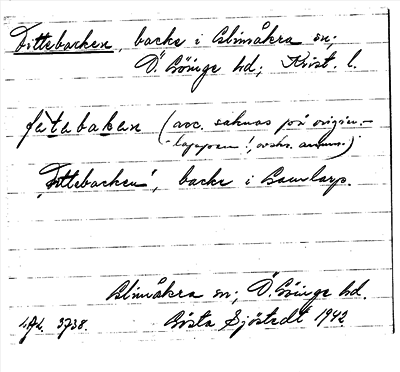 Fittebacken, backe i Glimåkra sn;
Ö. Göinge hd; Krist. l.
fetabakan (acc. saknas på origin.-
lappen!, avskr. anm.)
"Fittebacken", backe i Gamlarp.
Glimåkra sn; Ö. Göinge hd.
L.A.L. 3738. Gösta Sjöstedt 1942